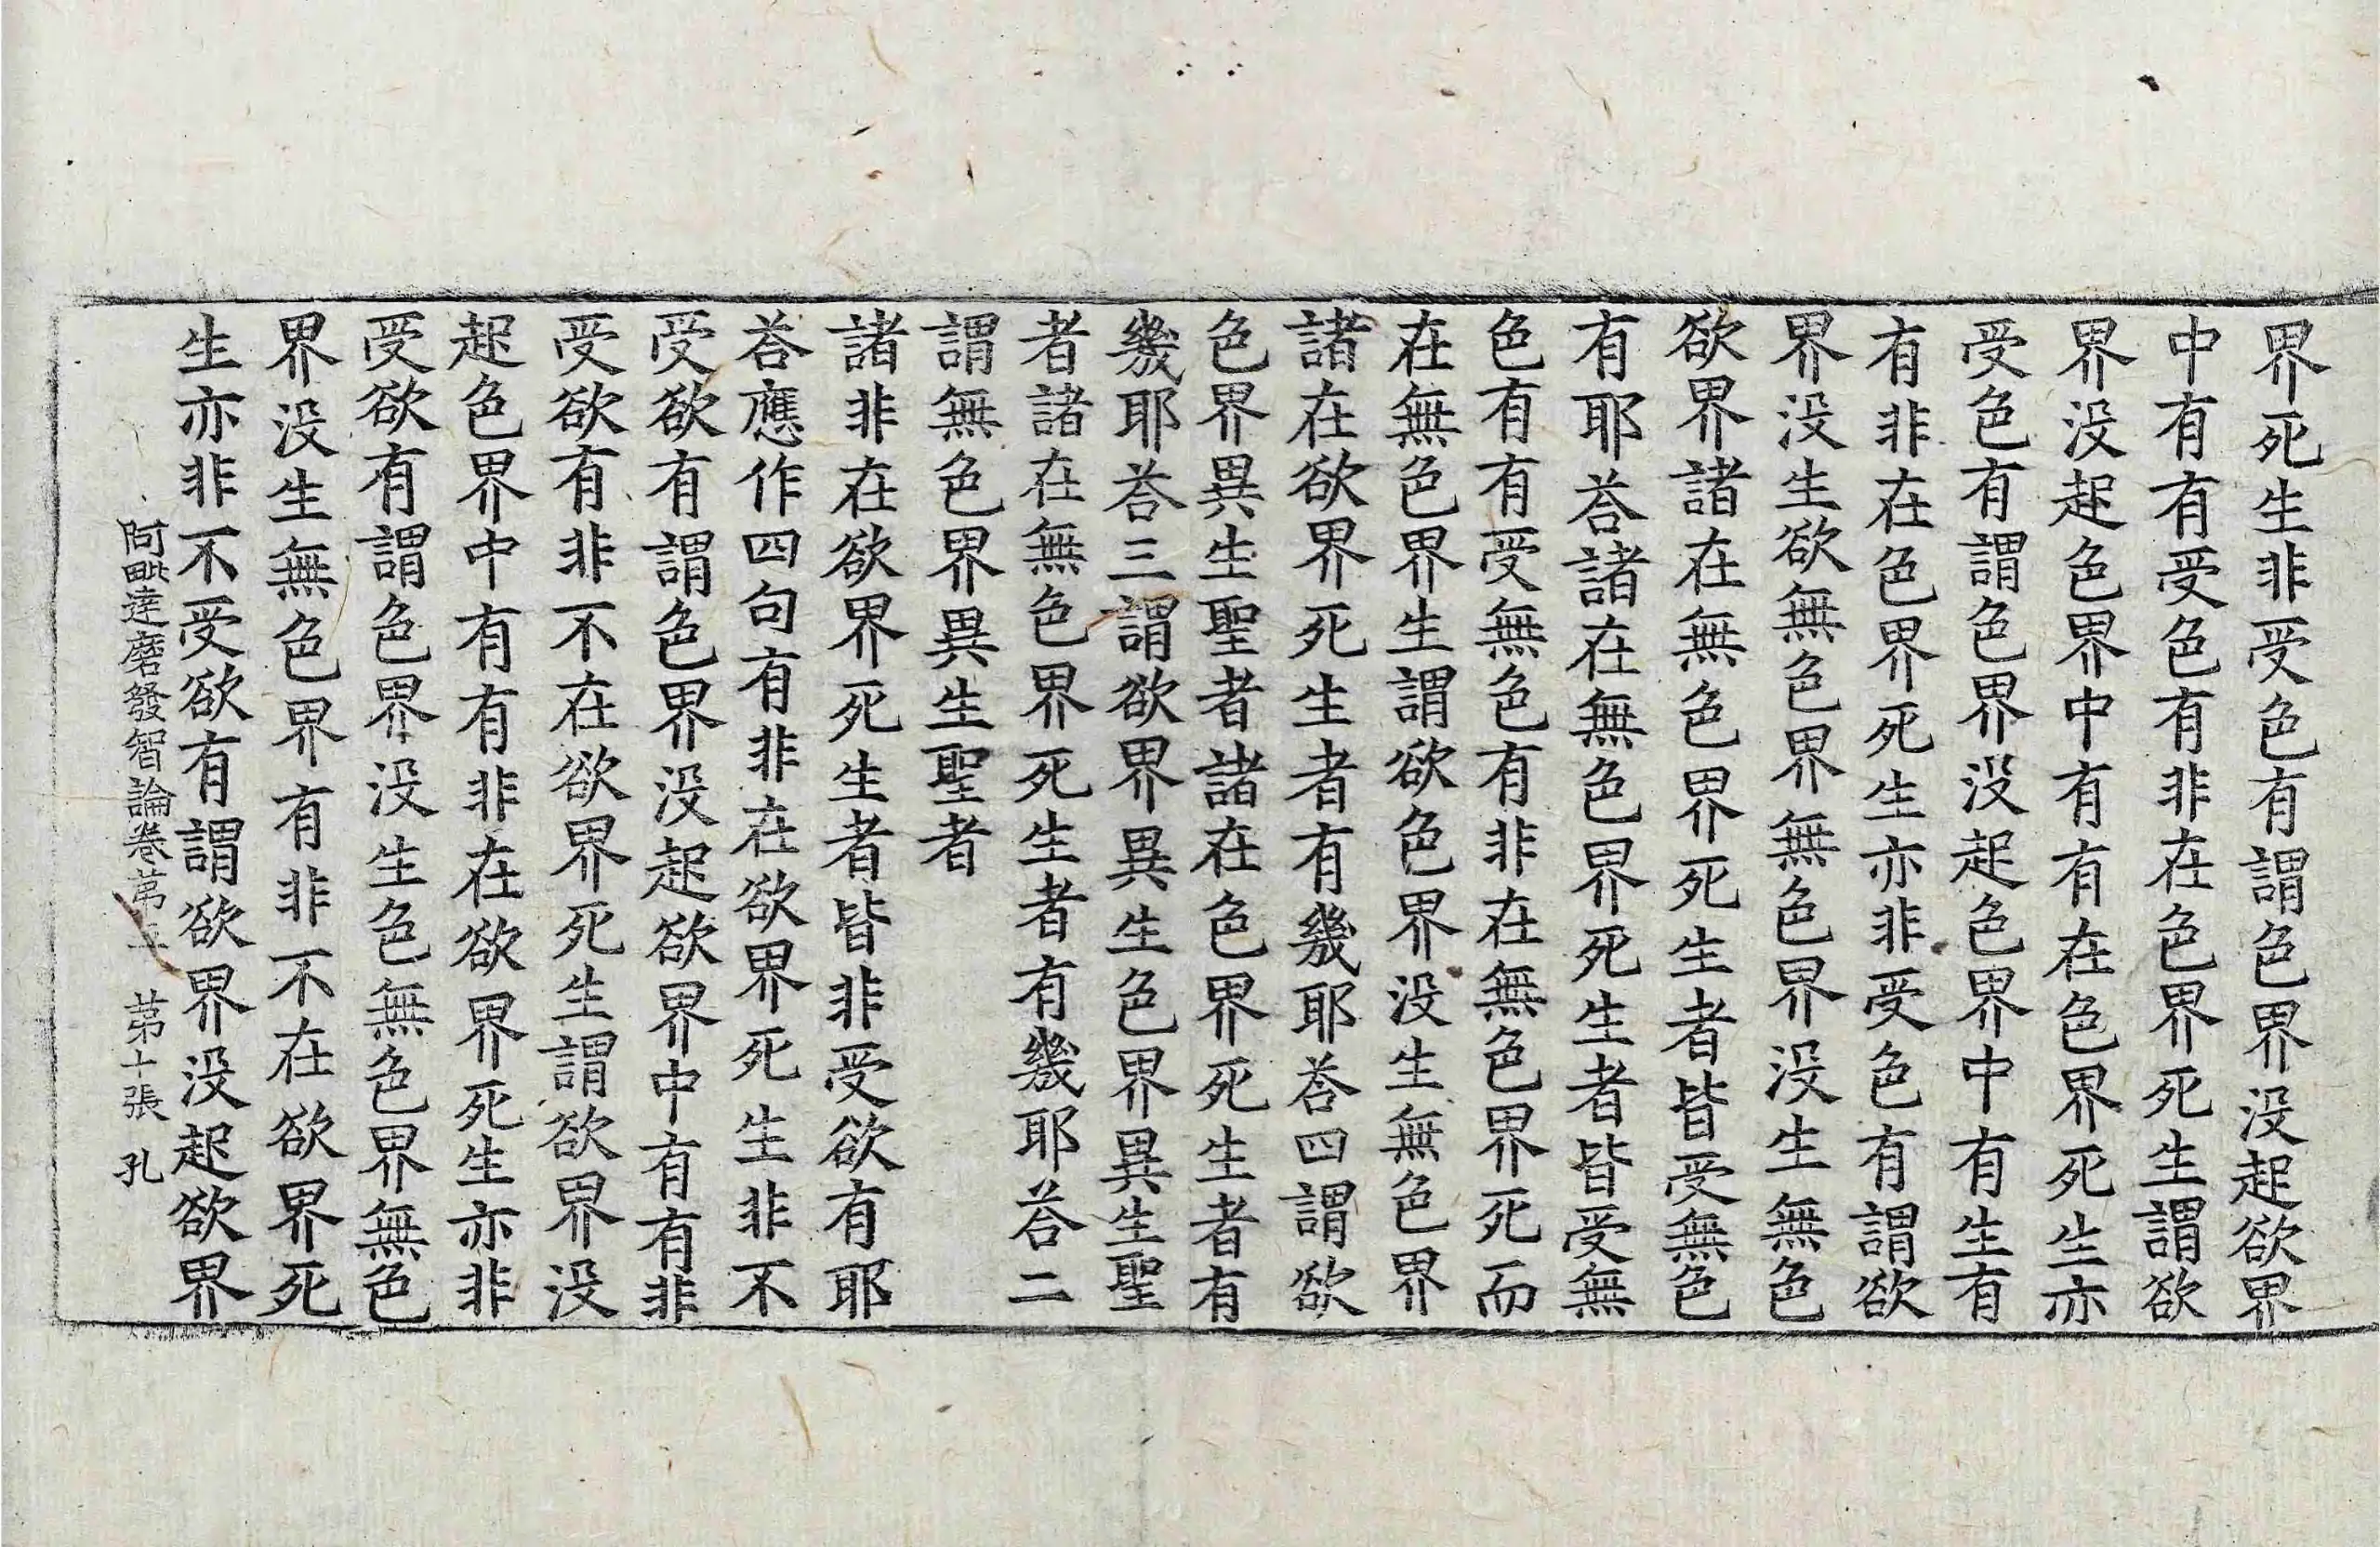 界死生非受色有謂色界没起欲界
中有有受色有非在色界死生謂欲
界没起色界中有有在色界死生亦
受色有謂色界没起色界中有生有
有非在色界死生亦非受色有謂欲
界没生欲無色界無色界没生無色
欲界諸在無色界死生者皆受無色
有耶荅諸在無色界死生者皆受無
色有有受無色有非在無色界死而
在無色界生謂欲色界没生無色界
諸在欲界死生者有幾耶荅四謂欲
色界異生聖者諸在色界死生者有
幾耶荅三謂欲界異生色界異生聖
者諸在無色界死生者有幾耶荅二
謂無色界異生聖者
諸非在欲界死生者皆非受欲有耶
荅應作四句有非在欲界死生非不
受欲有謂色界没起欲界中有有非
受欲有非不在欲界死生謂欲界没
起色界中有有非在欲界死生亦非
受欲有謂色界没生色無色界無色
界没生無色界有非不在欲界死
生亦非不受欲有謂欲界没起欲界
阿毗達磨發智論卷苐 苐十張 孔